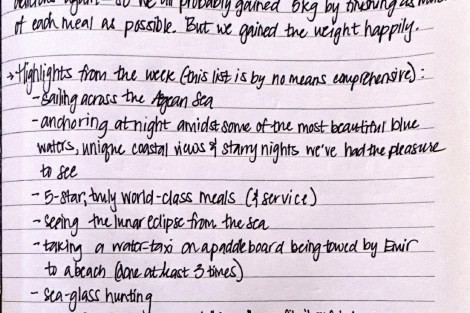 again. So we all probably gained 5kg by finishing as much
of each meal as possible. But we gained the weight happily.
→ Highlights from the week (this list is by no means comprehensive):
- sailing across the Agean Sea
- anchoring at night amidst some of the most beautiful blue
waters, unique coastal views & starry nights we've had the pleasure
to see
- 5-star, truly world-class meals (& service)
- seeing the lunar eclipse from the sea
- taking a water-taxi on a paddleboard being towed by Emir
to a beach (done at least 3 times)
- sea-glass hunting